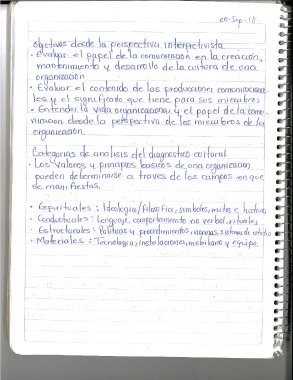 20-Sep-18
Objetivos desde la perspectiva interpretivista
• Evaluar el papel de la comunicación en la creación,
mantenimiento y desarrollo de la cultura de una
organización
• Evaluar el contenido de las producciones comunicaciona-
les y el significado que tiene para sus miembros
• Entender la vida organizacional y el papel de la comu-
nicación desde la perspectiva de los miembros de la
organización.
Categorías de analisis del diagnostico cultural
• Los valores y principios basicos de una organizacion
pueden determinarse a traves de los campos en que
se manifiestas.
• Espirituales: Ideologia/filosofia, simbolos, mitos e historia
• Conductuales: Lenguaje, comportamiento no verbal, rituales
• Estructurales: Politicas y procedimientos, normas, sistemas de
• Materiales: Tecnologia, instalaciones, mobiliario y equipo.